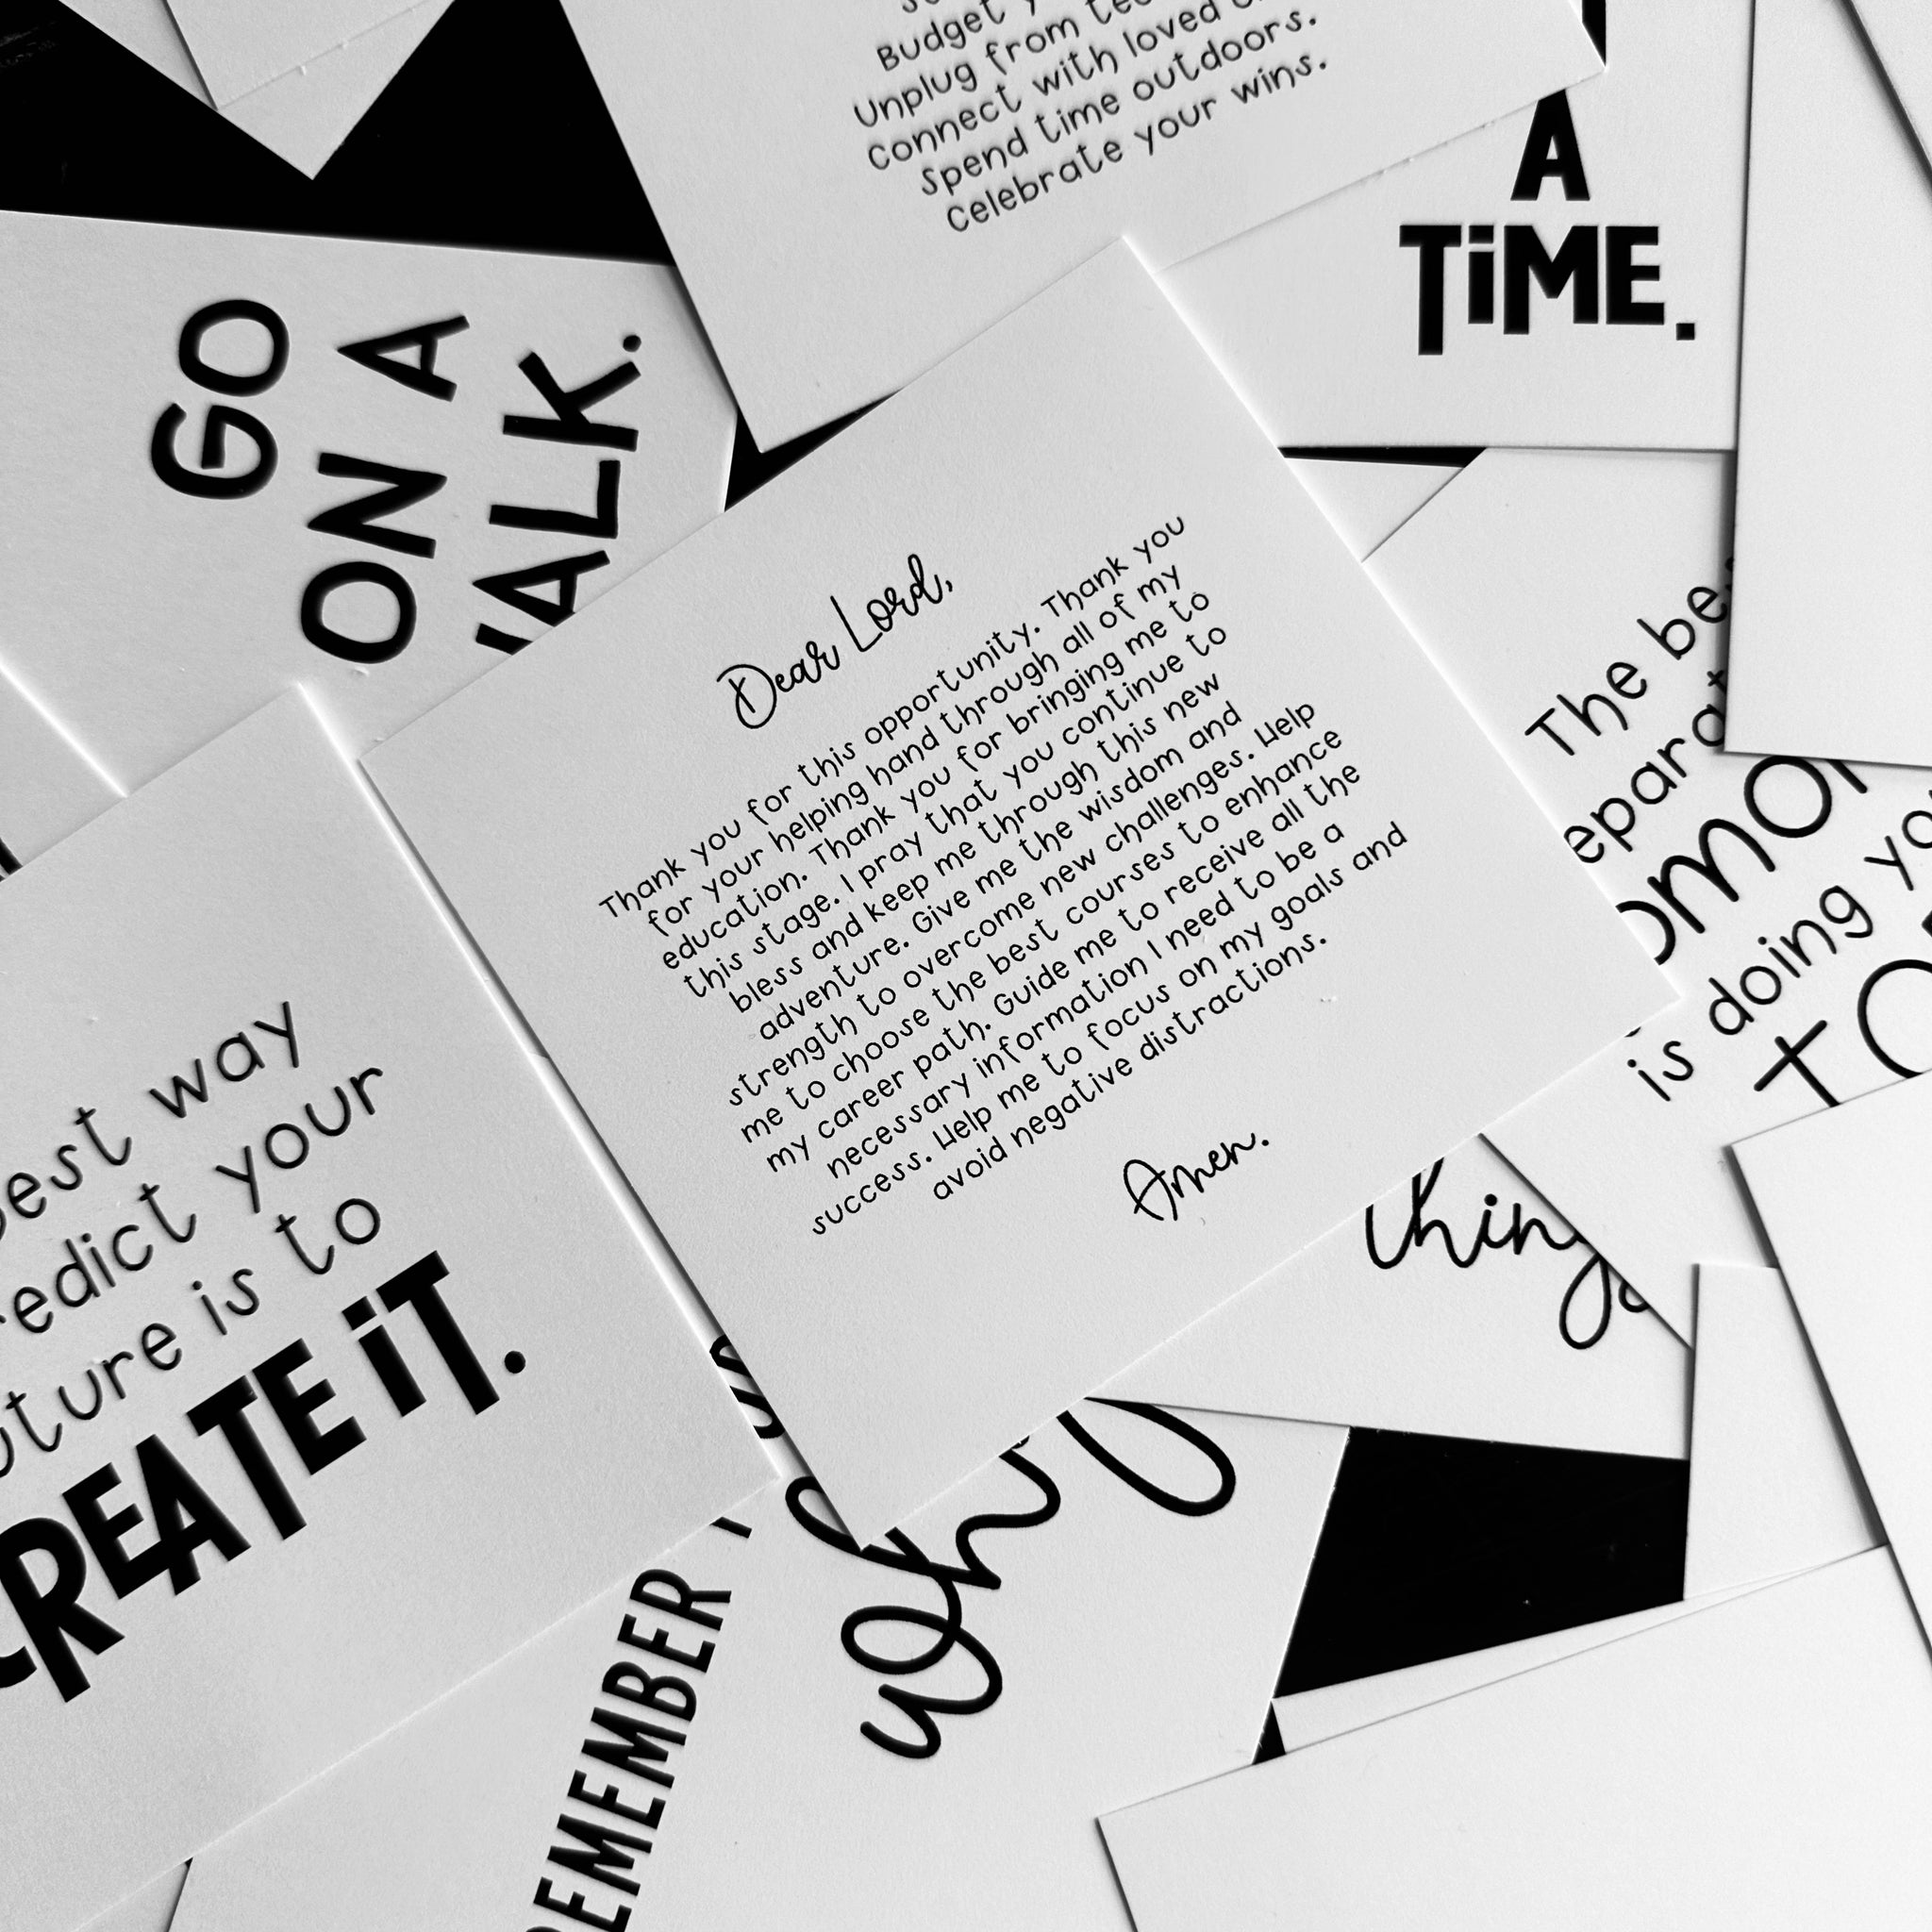 Budget
Unplug from
Connect with loved
Spend time outdoors.
Celebrate your wins.
A
TiME.
GO
ON A
WALK.
Dear Lord,
Thank you for this opportunity. Thank you
for your helping hand through all of my
education. Thank you for bringing me to
this stage. I pray that you continue to
bless and keep me through this new
adventure. Give me the wisdom and
strength to overcome new challenges. Help
me to choose the best courses to enhance
my career path. Guide me to receive all the
necessary information I need to be a
success. Help me to focus on my goals and
avoid negative distractions.
Amen.
The be
eparat
OMOR
is doing yo
TO
best way
redict your
uture is to
CREATE iT.
thing
REMEMBER
why